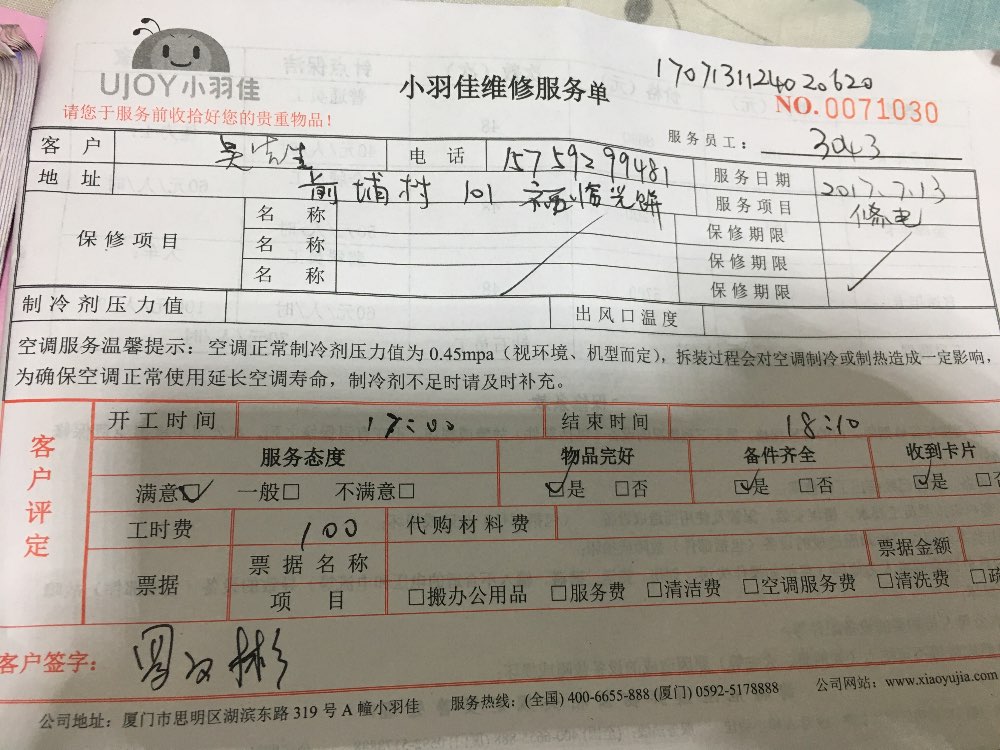 UJOY小羽佳
小羽佳维修服务单
1707131124020620
NO.0071030
请您于服务前收拾好您的贵重物品!
服务员工: 3043
客户 吴先生 电话 15759299481 服务日期 2017.7.13
地址 前埔村 101 服务项目 修电
保修项目 名称 保修期限
名称 保修期限
名称 保修期限
制冷剂压力值 出风口温度
空调服务温馨提示:空调正常制冷剂压力值为 0.45mpa(视环境、机型而定),拆装过程会对空调制冷或制热造成一定影响,
为确保空调正常使用延长空调寿命,制冷剂不足时请及时补充。
客户评定
开工时间 17:00 结束时间 18:10
服务态度 物品完好 备件齐全 收到卡片
满意☑ 一般□ 不满意□ ☑是 □否 ☑是 □否 ☑是 □否
工时费 100 代购材料费
票据 票据名称 票据金额
项目 □搬办公用品 □服务费 □清洁费 □空调服务费 □清洗费 □疏
客户签字:
公司地址:厦门市思明区湖滨东路 319 号 A 幢小羽佳 服务热线:(全国) 400-6655-888 (厦门) 0592-5178888 公司网站:www.xiaoyujia.com